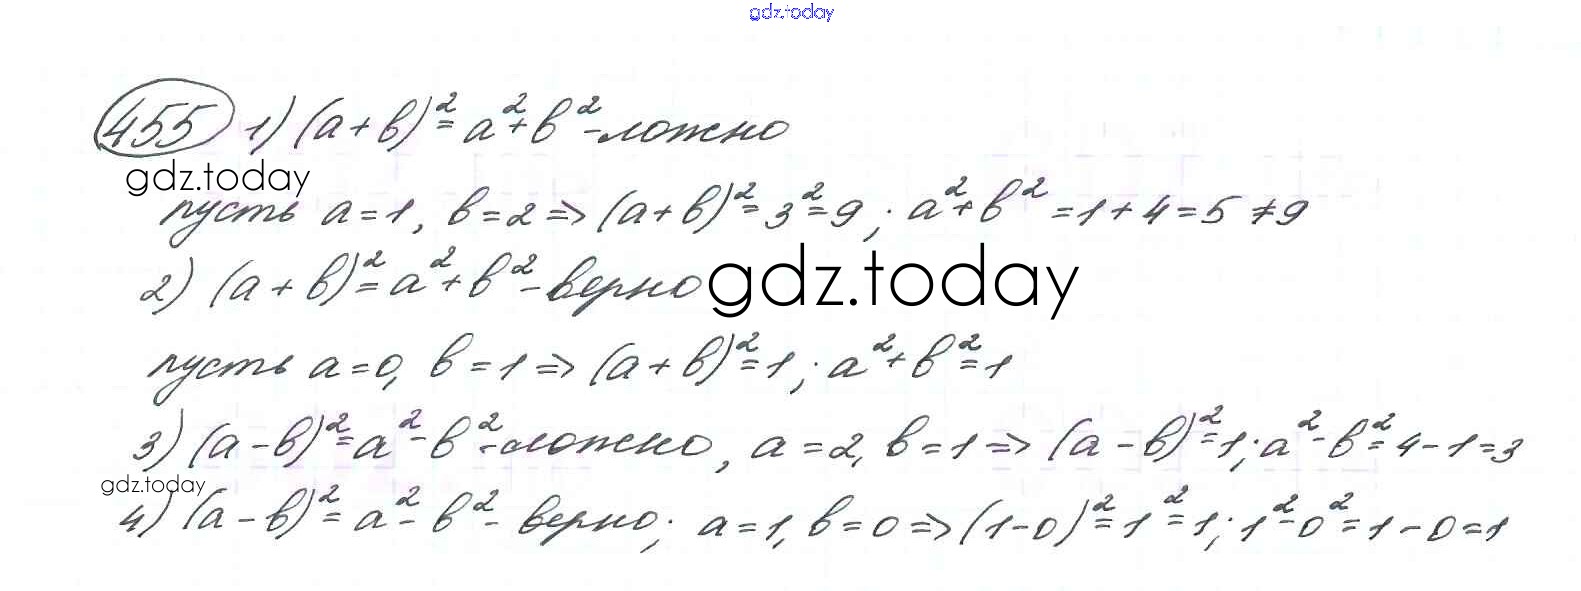 gdz.today
455 1) (a+b)²=a²+b² - ложно
gdz.today
пусть a=1, b=2 => (a+b)²=3²=9; a²+b²=1+4=5≠9
2) (a+b)²=a²+b² - верно gdz.today
пусть a=0, b=1 => (a+b)²=1; a²+b²=1
3) (a-b)²=a²-b² - ложно, a=2, b=1 => (a-b)²=1; a²-b²=4-1=3
gdz.today
4) (a-b)²=a²-b² - верно; a=1, b=0 => (1-0)²=1²=1; 1²-0²=1-0=1